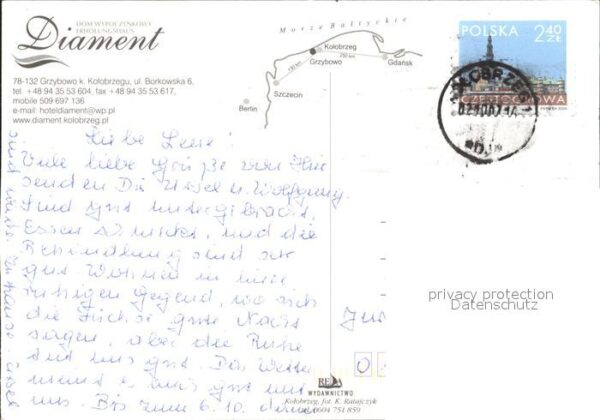 DOM WYPOCZYNKOWY
ERHOLUNGSHAUS
Diament
78-132 Grzybowo k. Kołobrzegu, ul. Borkowska 6,
tel. +48 94 35 53 604, fax +48 94 35 53 617,
mobile 509 697 136
e-mail: hoteldiament@wp.pl
www.diament.kolobrzeg.pl
Morze Bałtyckie
Kołobrzeg
Grzybowo
Gdańsk
Szczecin
Berlin
POLSKA 2,40 ZŁ
CZĘSTOCHOWA
Liebe Leni!
Viele liebe Grüße von hier
senden Dir Ursel u. Wolfgang.
Sind gut untergebracht,
Essen schmeckt, und die
Behandlung sind sehr
gut. Wohnen in einer
ruhigen Gegend, wo sich
die Füchse gute Nacht
sagen, aber die Ruhe
tut uns gut. Das Wetter
meint es auch gut mit
uns. Bis zum 6.10.
privacy protection
Datenschutz
WYDAWNICTWO
Kołobrzeg, fot. K. Ratajczyk
0604 751 859